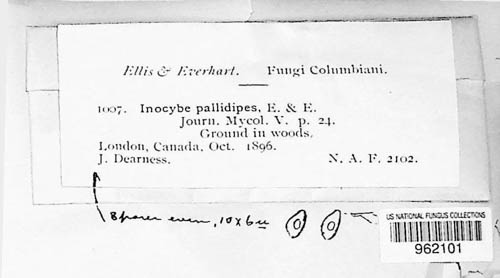 Ellis & Everhart. Fungi Columbiani.
1007. Inocybe pallidipes, E. & E.
Journ. Mycol. V. p. 24.
Ground in woods.
London, Canada, Oct. 1896.
J. Dearness. N. A. F. 2102.
Spores even, 10 x 6 u
US NATIONAL FUNGUS COLLECTIONS
962101